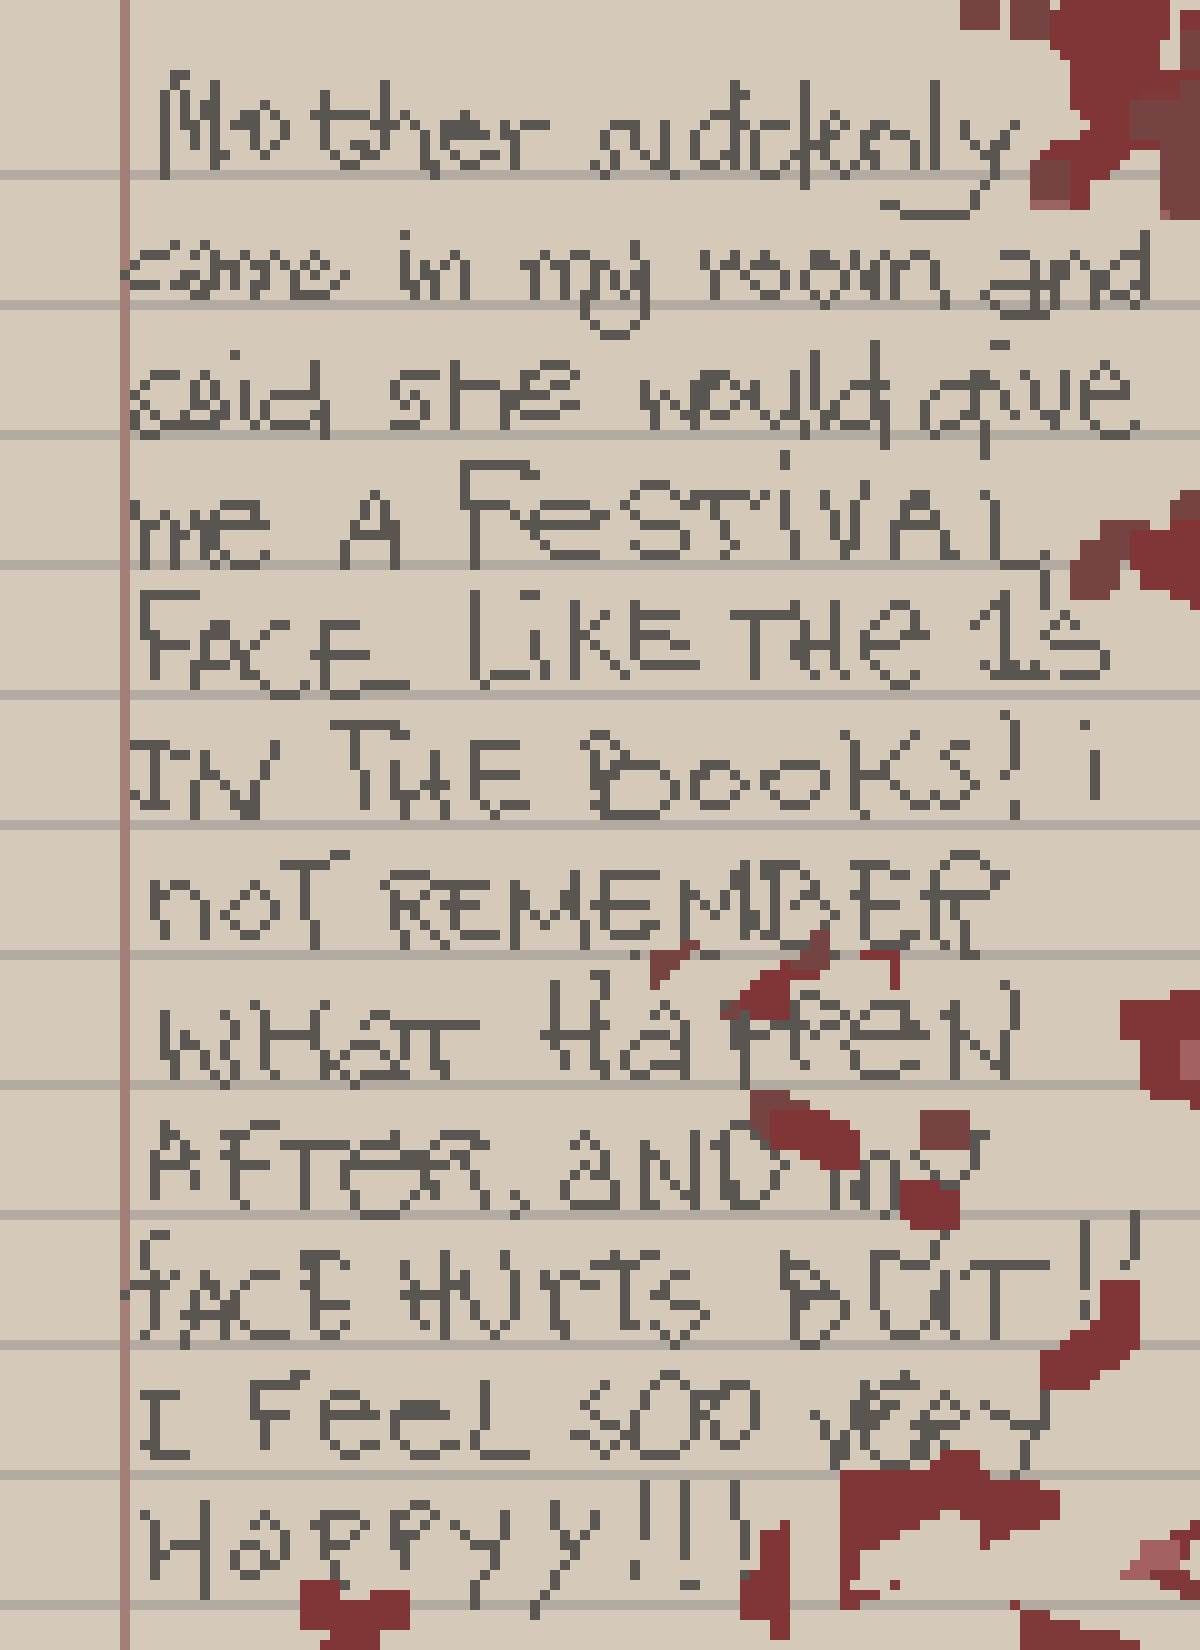 Mother suddenly
came in my room and
said she would give
me A FeSTiVAL
FACE LiKE THe 1's
IN THE BooKs! i
noT REMEMBER
WHaT HaPPeN
AFTER, aND my
fACE HUrTs BUT!!
I FeeL sOo very
HaPPyy!!!